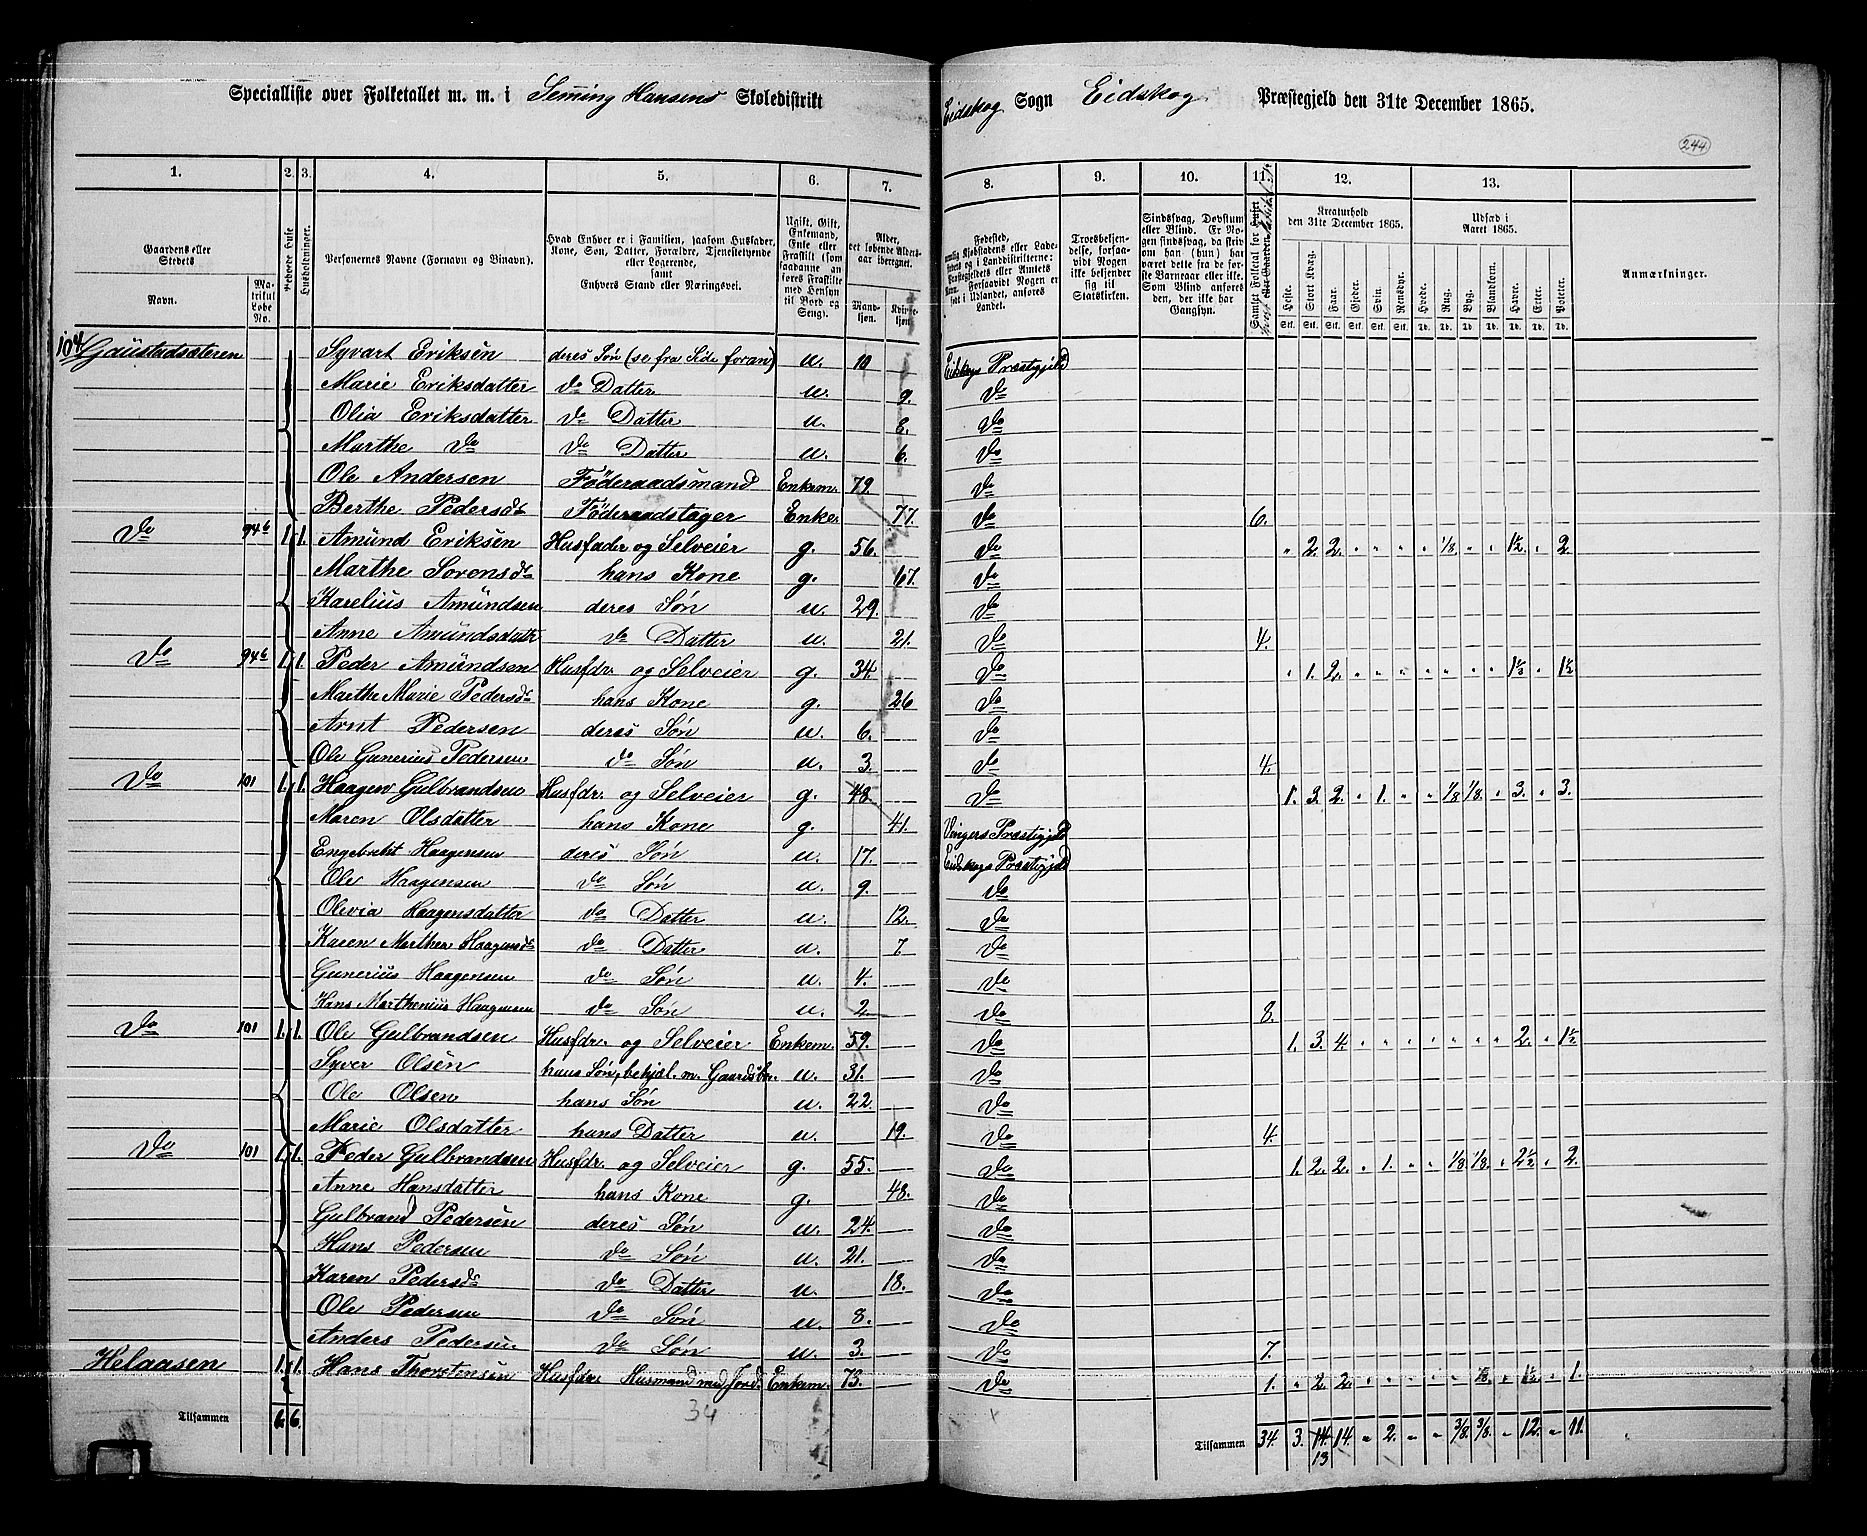 Specialliste over Folketallet m. m. i Semming Hansens Skoledistrikt Eidskog Sogn Eidskog Præstegjeld den 31te December 1865.
244
1. 2. 3. 4. 5. 6. 7. 8. 9. 10. 11. 12. 13.
Gaardens eller Stedets
Navn.
Matrikul Løbe No.
Beboede Huse
Husholdninger.
Personernes Navne (Fornavn og Tilnavn).
Hvad Enhver er i Familien, saasom Husfader, Kone, Søn, Datter, Forældre, Tjenestetyende eller Logerende, samt Enhvers Stand eller Næringsvei.
Ugift, Gift, Enkemand, Enke eller Fraskilt (som saadanne anføres Fraskilte med Hensyn til Bord og Seng).
Alder, det løbende Aldersaar iberegnet.
Mandkjøn.
Kvindekjøn.
Troesbekjendelse, forsaavidt Nogen ikke bekjender sig til Statskirken.
Sindssvag, Døvstum eller Blind. Er Nogen sindssvag, da skriv om han (hun) har været dette fra de første Barneaar eller ikke. Som Blind anføres den, der ikke har Gangsyn.
Kreaturhold den 31te December 1865.
Heste. Stort Kvæg. Faar. Gjeder. Svin. Rensdyr.
Udsæd i Aaret 1865.
Hvede. Rug. Byg. Blandkorn. Havre. Erter. Poteter.
Anmærkninger.
104 Gaustadsæteren Syvart Eriksen deres Søn (se fra Side foran) u. 10 Eidskogs Præstegjeld
Marie Eriksdatter do Datter u. 9. do
Olia Eriksdatter do Datter u. 8. do
Marthe do do Datter u. 6. do
Ole Andersen Föderaadsmand Enkem. 79. do
Berthe Pedersd. Föderaadstager Enke. 77. do 6.
do 94b 1. 1. Amund Eriksen Husfader og Selveier g. 56. do " 2. 2. " " " " 1/8 " " 1½ " 2
Marthe Sorensd. hans Kone g. 67. do
Karelius Amundsen deres Søn u. 29. do
Anne Amundsdatr do Datter u. 21. do 4.
do 94b 1. 1. Peder Amundsen Husfdr. og Selveier g. 34. do " 1. 2. " " " " " " " 1½ " 1½
Marthe Marie Pedersd. hans Kone g. 26 do
Arnt Pedersen deres Søn u. 6. do
Ole Gunerius Pedersen do Søn u. 3. do 4.
do 101 1. 1. Haagen Gulbrandsen Husfdr. og Selveier g. 48. do 1. 3. 2. " 1. " " 1/8 1/8 " 3. " 3.
Maren Olsdatter hans Kone g. 41. Vingers Præstegjeld
Engebreht Haagensen deres Søn u. 17. Eidskogs Præstegjeld
Ole Haagensen do Søn u. 9. do
Olevia Haagensdatter do Datter u. 12. do
Karen Marthea Haagensd. do Datter u. 7 do
Gunerius Haagensen do Søn u. 4. do
Hans Marthenius Haagensen do Søn u. 2 do 8.
do 101 1. 1. Ole Gulbrandsen Husfdr. og Selveier Enkem. 59. do 1. 3. 4. " " " " " " " 2. " 1½
Syver Olsen hans Søn, behjæl. m. Gaardsbr. u. 31. do
Ole Olsen hans Søn u. 22. do
Marie Olsdatter hans Datter u. 19. do 4.
do 101 1. 1. Peder Gulbrandsen Husfdr. og Selveier g. 55. do 1. 2. 2. " 1. " " 1/8 1/8. " 2½ " 2.
Anne Hansdatter hans Kone g. 48. do
Gulbrand Pedersen deres Søn u. 24. do
Hans Pedersen do Søn u. 21. do
Karen Pedersd. do Datter u. 18. do
Ole Pedersen do Søn u. 8. do
Anders Pedersen do Søn u. 3. do 7.
Helaasen 1. 1. Hans Thorstensen Husfdr. Husmand med Jord. Enkem. 73. do 1. " 2. 2. " " " " " 1/8. " 1½ " 1.
Tilsammen 6. 6. 34
Tilsammen 34. 3. 14. 14. " 2. " " 3/8. 3/8. " 12. " 11.
13